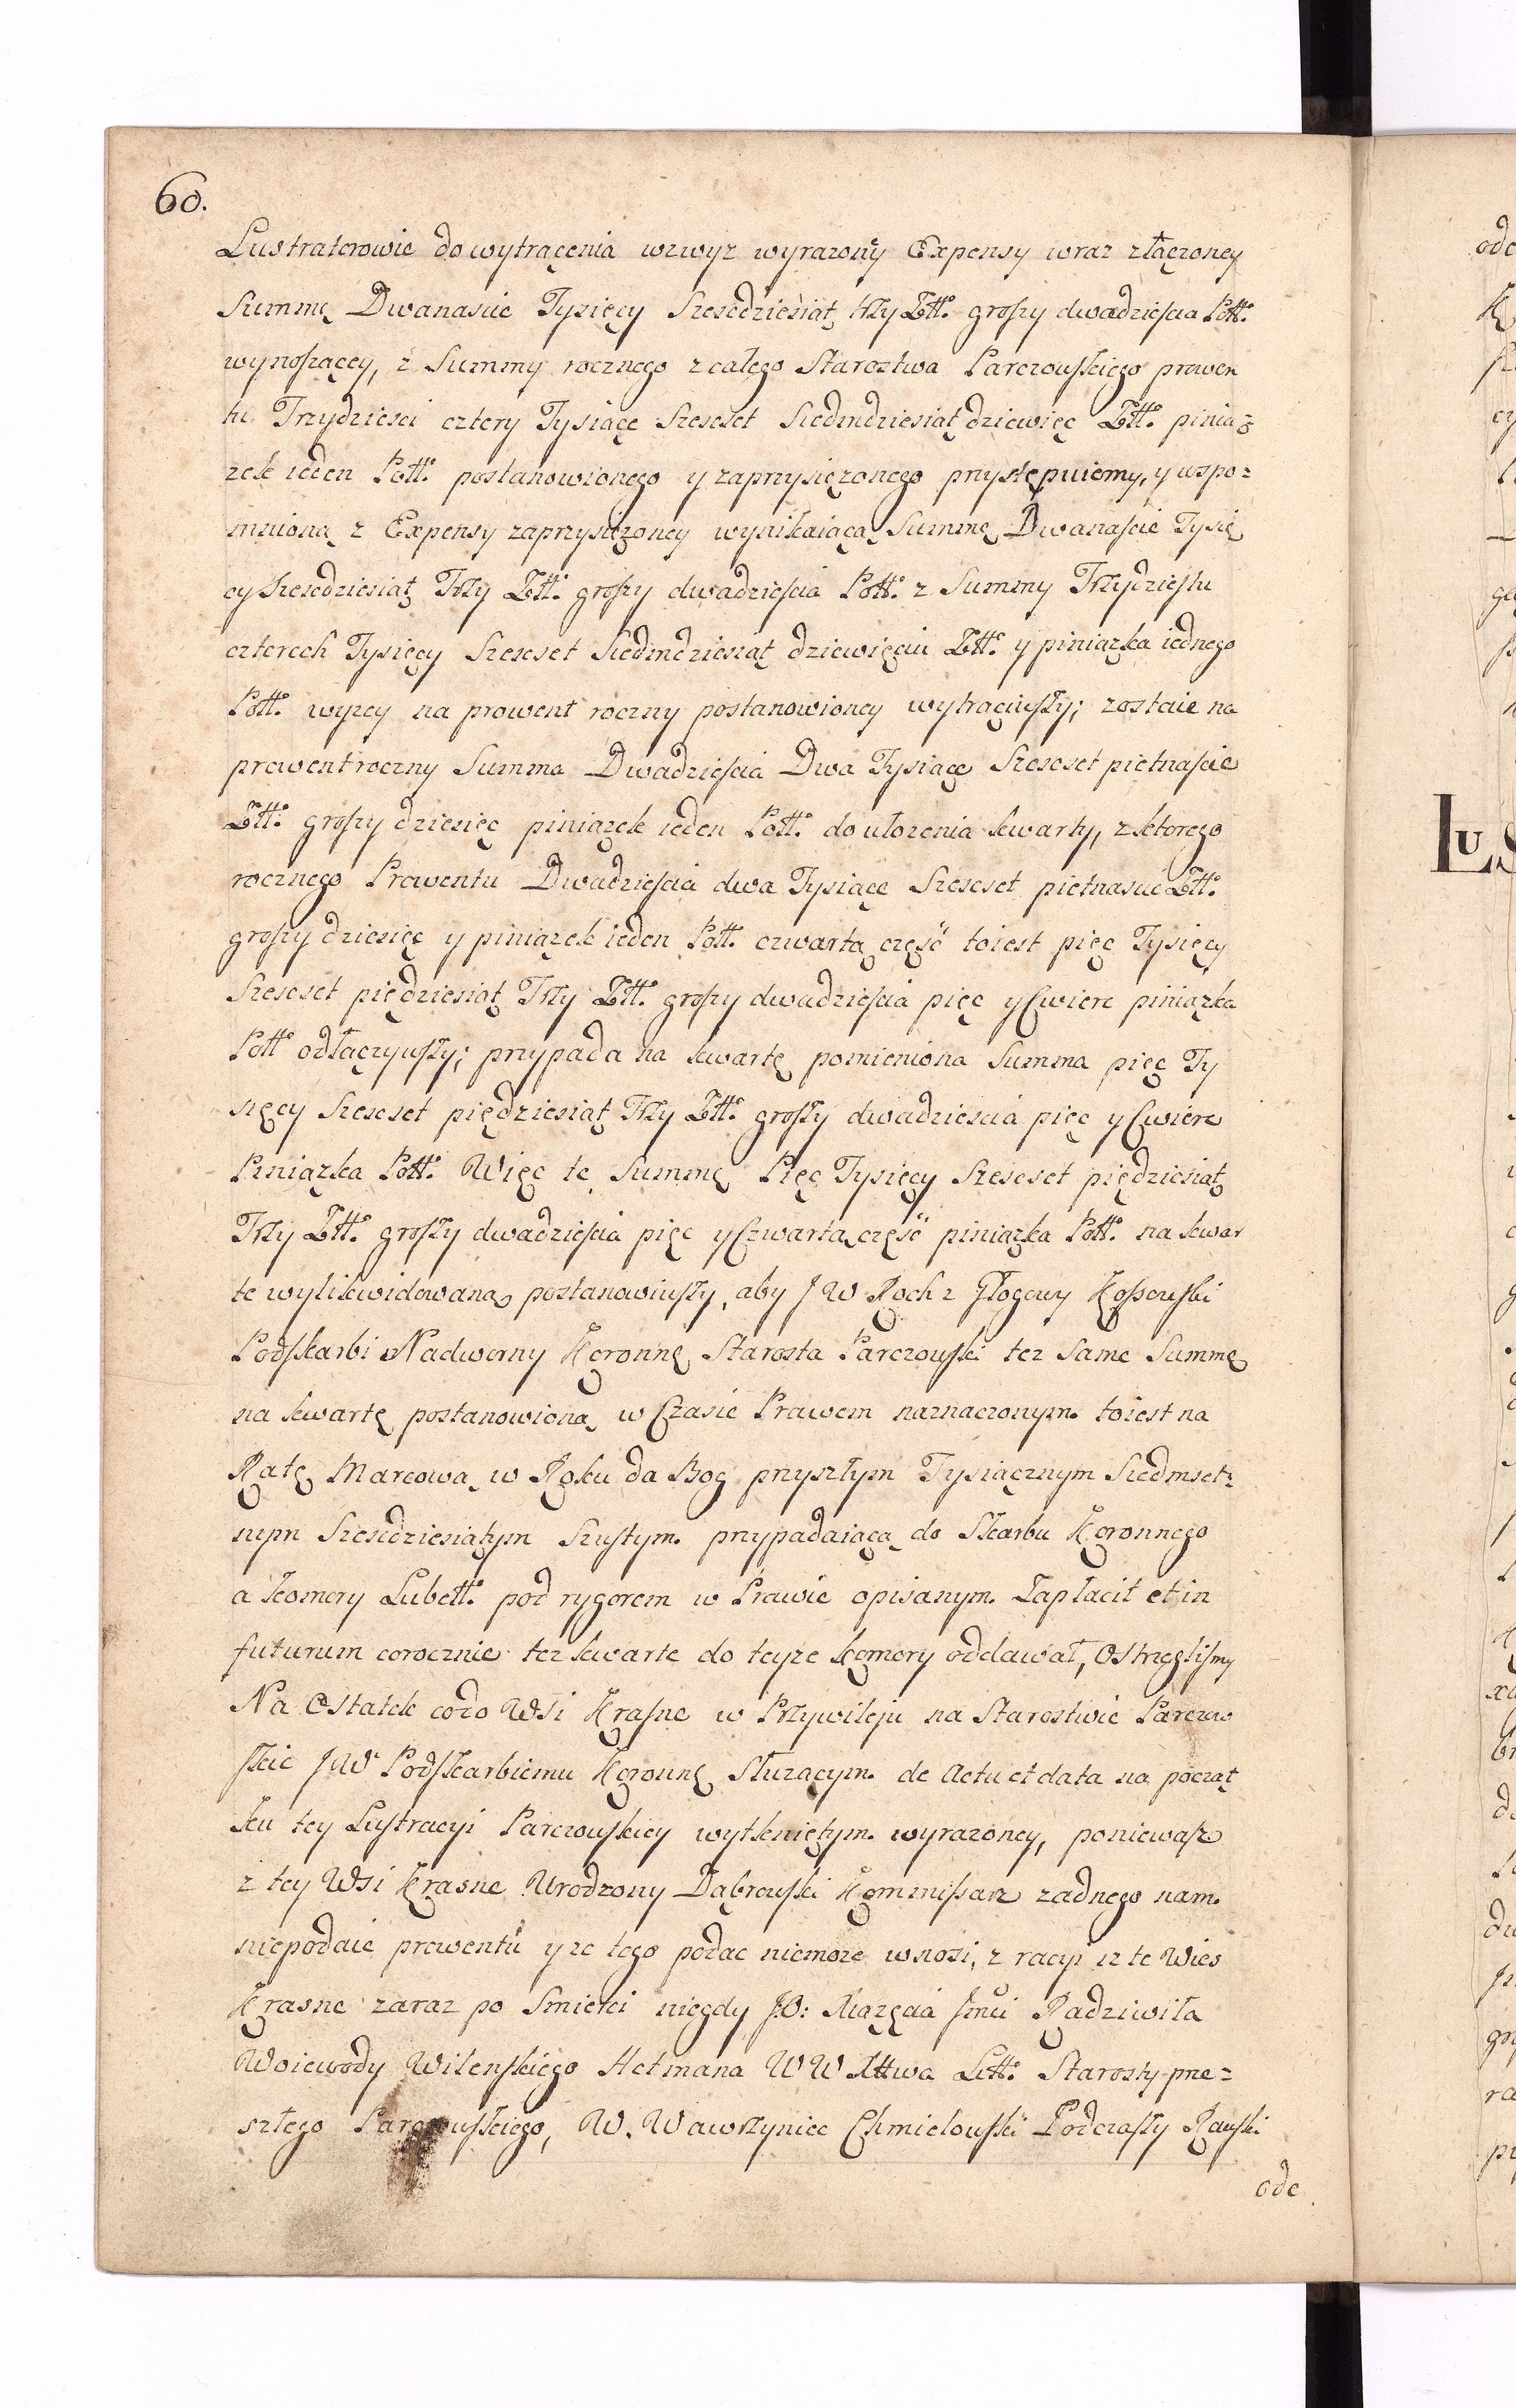 60.
Lustratorowie do wytrącenia wzwyz wyrazoney Expensy wraz złączoney
Summę Dwanascie Tysięcy Szescdziesiąt trzy Złł. groszy dwadziescia Poll.
wynoszącey, z Summy rocznego z całego Starostwa Parczowskiego prowen
tu Trzydziesci cztery Tysiące Szescset Siedmdziesiąt dziewięc Złł. pinią=
zek ieden Poll. postanowionego y zaprzysięzonego przystępuiemy, y wspo=
mnioną z Expensy zaprzysięzoney wynikaiącą Summę Dwanascie Tysię
cy Szescdziesiąt Trzy Złł. groszy dwadziescia Poll. z Summy Trzydziestu
czterech Tysięcy Szescset Siedmdziesiąt dziewięciu Złł. y piniązka iednego
Poll. wyzey na prowent roczny postanowioney wytrąciwszy; zostaie na
prowent roczny Summa Dwadziescia Dwa Tysiące Szescset pietnascie
Złł. groszy dziesięc piniązek ieden Poll. do ułozenia kwarty, z ktorego
rocznego Prowentu Dwadziescia dwa Tysiące Szescset pietnascie Złł.
groszy dziesięc y piniązek ieden Poll. czwartą częsć toiest pięc Tysięcy
Szescset piędziesiąt Trzy Złł. groszy dwadziescia pięc y Cwierc piniązka
Poll odłączywszy; przypada na kwartę pomieniona Summa pięc Ty
sięcy Szescset piędziesiąt Trzy Złł. groszy dwadziescia pięc y Cwierc
Piniązka Poll. Więc tę Summę Pięc Tysięcy Szescset piędziesiąt
Trzy Złł. groszy dwadziescia pięc y Czwartą częsć piniązka Poll. na kwar
te wylikwidowaną postanowiwszy, aby JW Roch z Głogowy Kossowski
Podskarbi Nadworny Koronny Starosta Parczowski tez same Summę
na kwartę postanowioną w Czasie Prawem naznaczonym. toiest na
Ratę Marcową w Roku da Bog przyszłym Tysiącznym Siedmset=
nym Szescdziesiątym Szustym. przypadaiącą do Skarbu Koronnego
a komory Lubell. pod rygorem w Prawie opisanym. Zapłacił et in
futurum corocznie tez kwarte do teyze komory oddawał, Ostrzeglismy
Na Ostatek codo Wsi Krasne w Przywileju na Starostwie Parczow
skie JW Podskarbiemu Koronnę Słuzącym. de Actu et data na począt
ku tey Lustracyi Parczowskiey wytkniętym. wyrazoney, poniewasz
z tey Wsi Krasne Urodzony Dąbrowski Kommissarz zadnego nam.
niepodaie prowentu y ze tego podac niemoze wnosi, z racyi iz te Wies
Krasne zaraz po Smierci niegdy J.O: Xiązęcia Jmci Radziwiła
Woiewody Wilenskiego Hetmana W W Xttwa Litt. Starosty prze=
szłego Parczowskiego, W. Wawrzyniec Chmielowski Podczaszy Rawski
ode